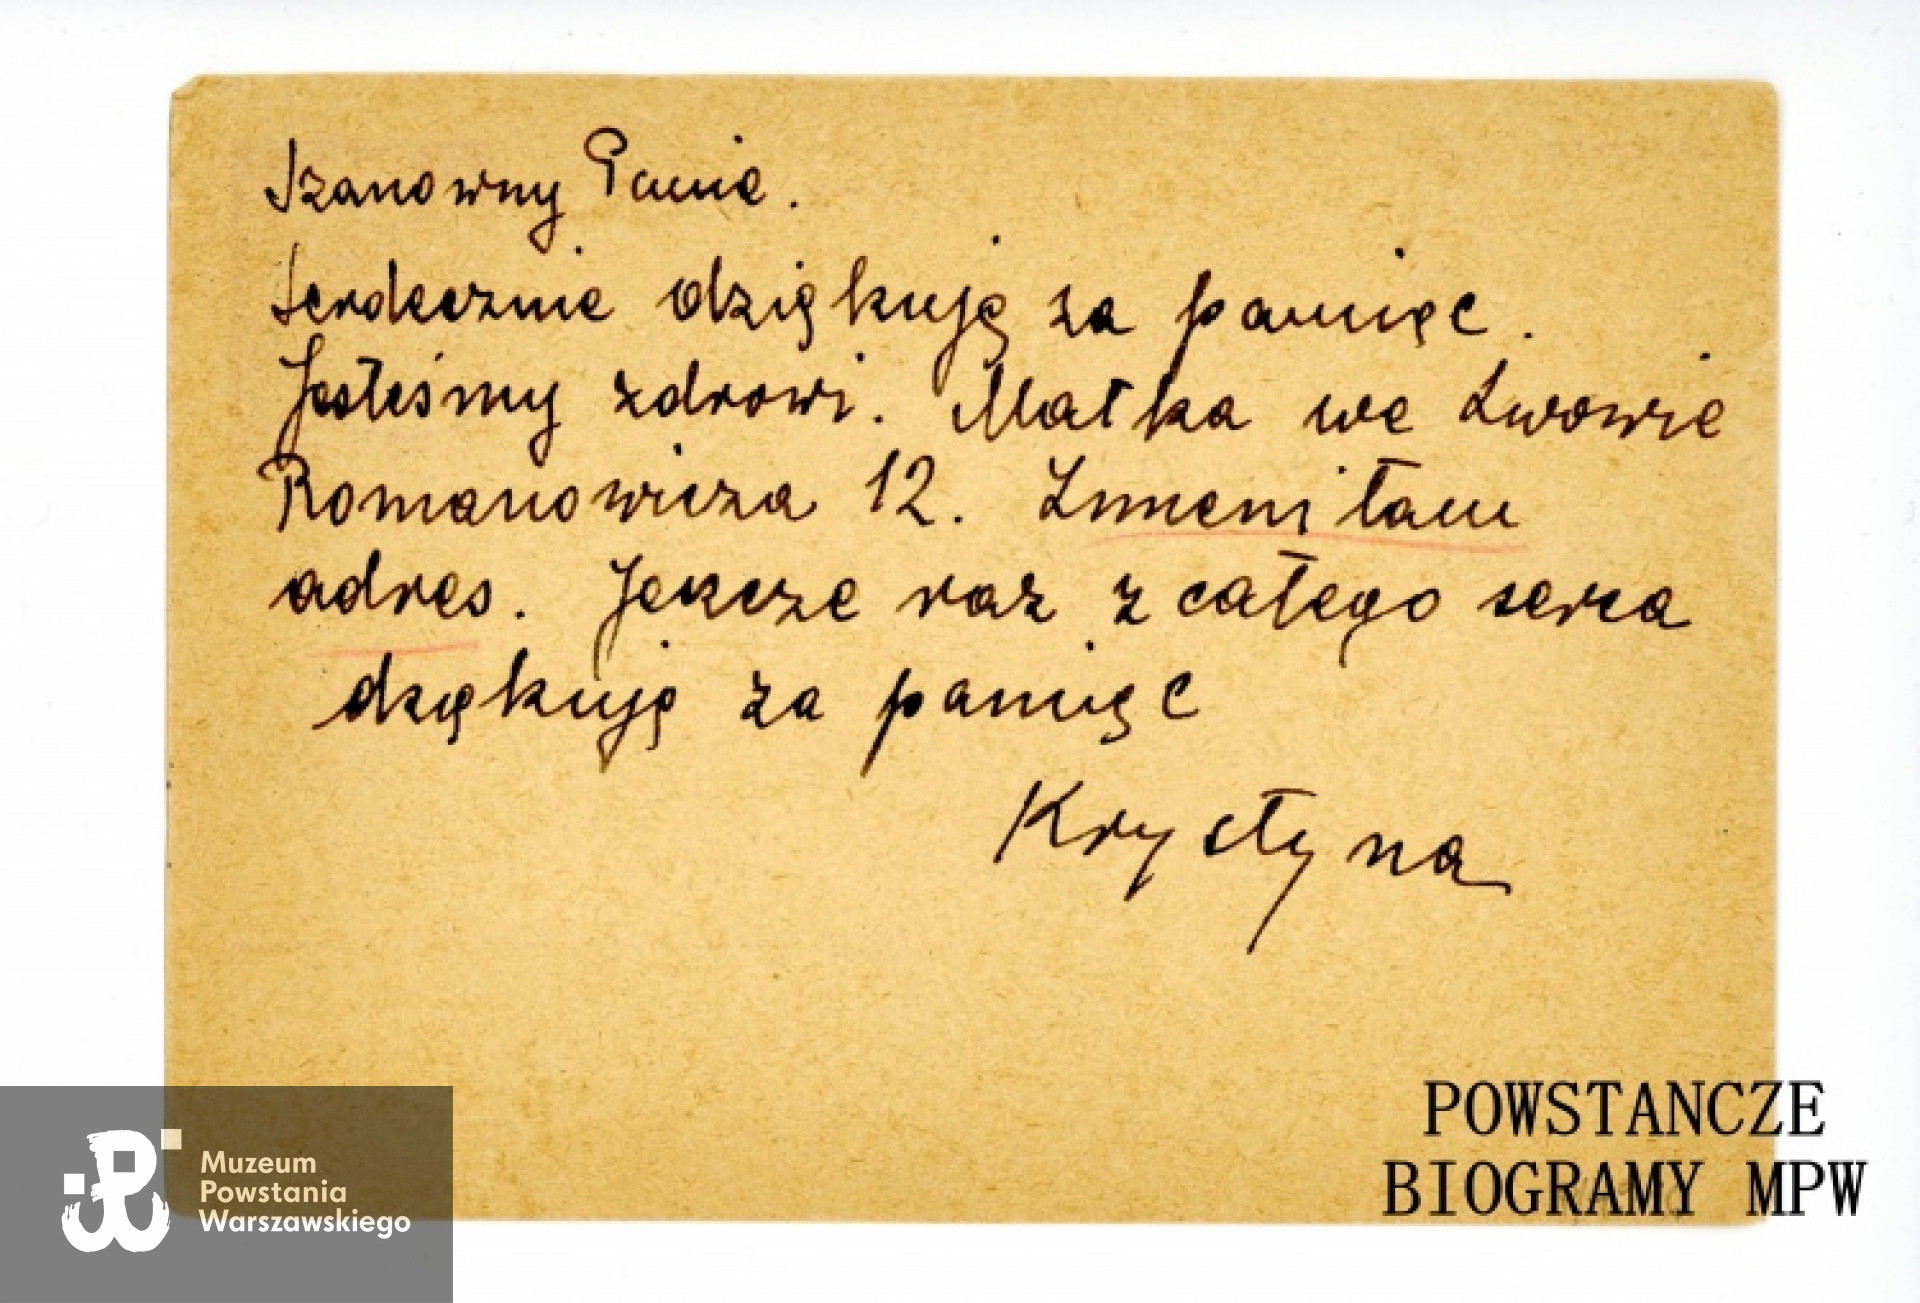 Szanowny Panie.
Serdecznie dziękuję za pamięć.
Jesteśmy zdrowi. Matka we Lwowie
Romanowicza 12. Zmieniłam
adres. Jeszcze raz z całego serca
dziękuję za pamięć
Krystyna
POWSTANCZE
BIOGRAMY MPW
Muzeum
Powstania
Warszawskiego